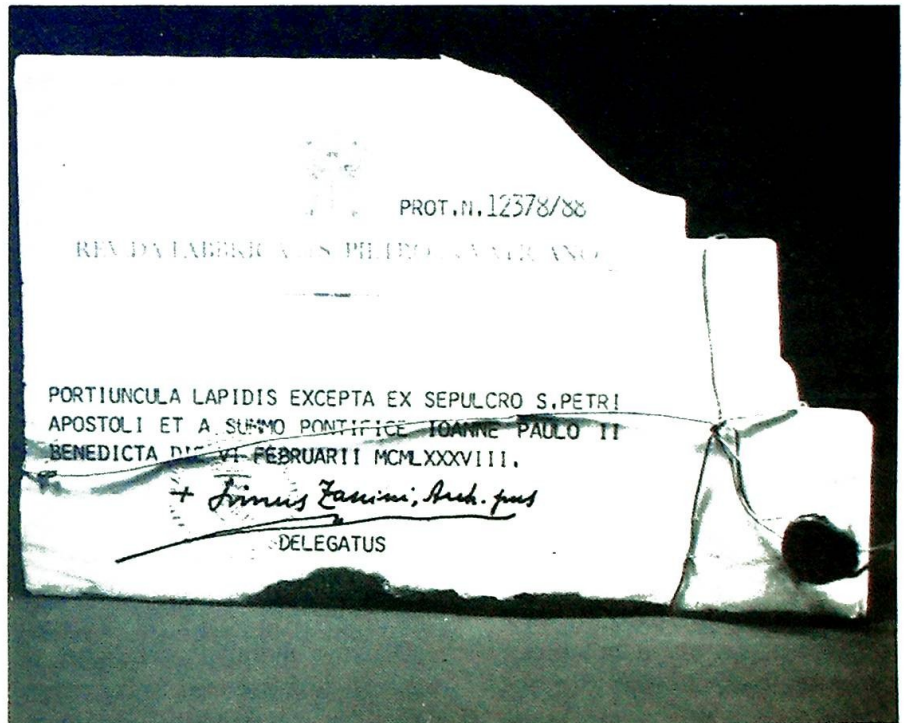 PROT.N. 12378/88
REV. DA FABBRICA DI S. PIETRO IN VATICANO
PORTIUNCULA LAPIDIS EXCEPTA EX SEPULCRO S.PETRI
APOSTOLI ET A SUMMO PONTIFICE IOANNE PAULO II
BENEDICTA DIE VI FEBRUARII MCMLXXXVIII.
+ Zanini, Arch.pus
DELEGATUS